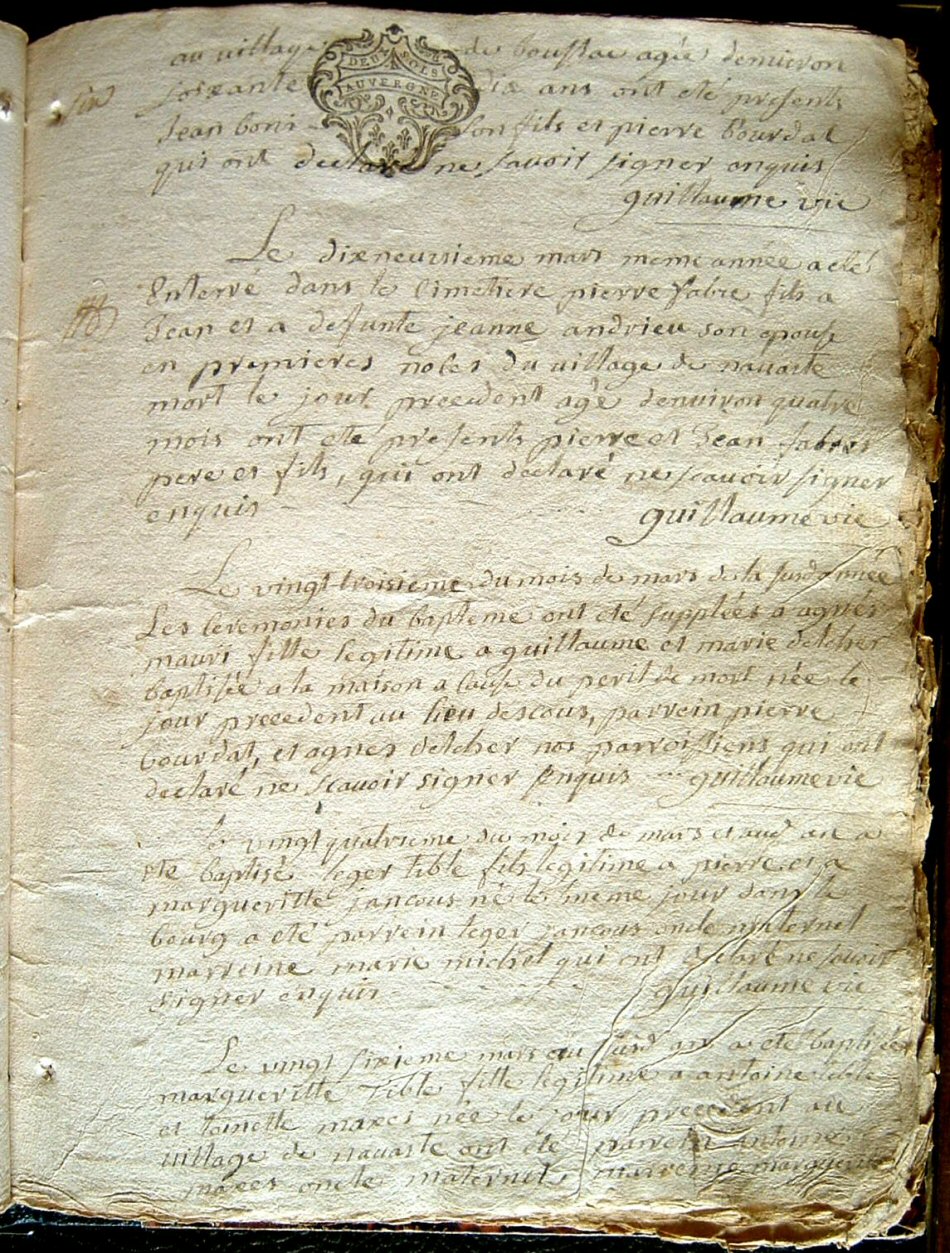 au village de boussac agée denviron
soixante dix ans ont été presents
Jean boni son fils et pierre bourdat
qui ont declaré ne savoir signer enquis
guillaume vie
DEUX SOLS
AUVERGNE
Le dixneuvieme mars meme annee a eté
Enterré dans le Cimetiere pierre fabre fils a
Jean et a defunte jeanne andrieu son epouse
en premieres noces du village de navaste
mort le jour precedent agé denviron quatre
mois ont eté presents pierre et Jean fabres
pere et fils, qui ont declaré ne scavoir signer
enquis
guillaume vie
Le vingt troisieme du mois de mars de la susd année
Les ceremonies du bapteme ont eté supplées a agnés
mauri fille legitime a guillaume et marie delcher
baptisée a la maison a cause du peril de mort née le
jour precedent au lieu descous, parrein pierre
bourdat, et agnes delcher nos parroissiens qui ont
declaré ne scavoir signer enquis guillaume vie
Le vingt quatrieme du mois de mars et aud an a
ete baptisé leger tible fils legitime a pierre et a
margueritte jancous né le meme jour dans le
bourg a eté parrein leger jancous oncle maternel
marreine marie michel qui ont declaré ne savoir
signer enquis
guillaume vie
Le vingt sixieme mars au susd an a eté baptisée
margueritte Tible fille legitime a antoine tible
et toinette maxes née le jour precedent au
village de navaste ont eté parrein antoine
maxes oncle maternel, marreine marguerite